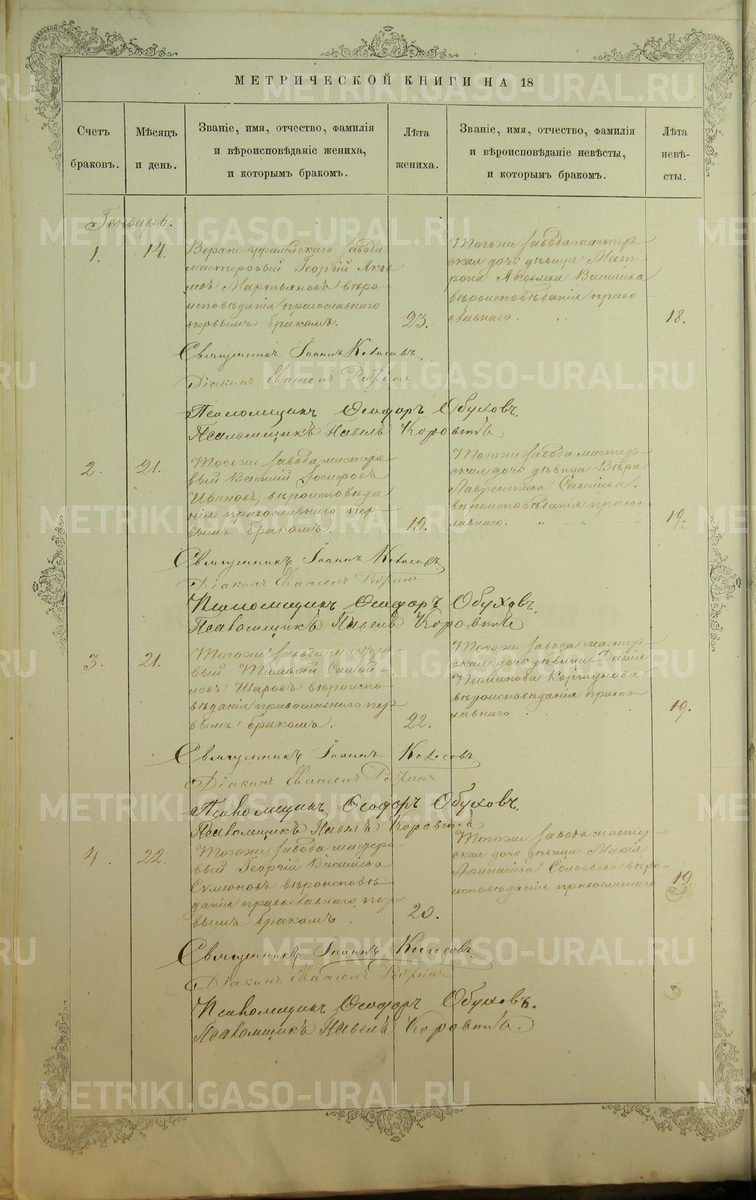 МЕТРИЧЕСКОЙ КНИГИ НА 18
Счетъ браковъ.
Мѣсяцъ и день.
Званіе, имя, отчество, фамилія и вѣроисповѣданіе жениха, и которымъ бракомъ.
Лѣта жениха.
Званіе, имя, отчество, фамилія и вѣроисповѣданіе невѣсты, и которымъ бракомъ.
Лѣта невѣ-сты.
Генварь.
1.
14.
завода
мастеровой Георгій
Мартьяновъ вѣро
исповѣданія православнаго
первымъ бракомъ.
23.
Тогоже завода мастер
ская дочь дѣвица Мат
рона
вѣроисповѣданія право
славнаго.
18.
Священникъ Іоаннъ
Діаконъ
Псаломщикъ Ѳеодоръ Обуховъ.
Псаломщикъ Павелъ Коровинъ
2.
21.
Тогоже завода мастеро
вый Василій Іосифовъ
Ивановъ вѣроисповѣда
нія православнаго пер
вымъ бракомъ.
19.
Тогоже завода мастер
ская дочь дѣвица Вѣра
Лаврентьева
вѣроисповѣданія право
славнаго.
19.
Священникъ Іоаннъ
Діаконъ
Псаломщикъ Ѳеодоръ Обуховъ.
Псаломщикъ Павелъ Коровинъ
3.
21.
Тогоже завода мастеро
вый
Шаровъ вѣроиспо
вѣданія православнаго пер
вымъ бракомъ.
22.
Тогоже завода мастер
ская дочь дѣвица Дарія
Коршунова
вѣроисповѣданія право
славнаго
19.
Священникъ Іоаннъ
Діаконъ
Псаломщикъ Ѳеодоръ Обуховъ.
Псаломщикъ Павелъ Коровинъ
4.
22.
Тогоже завода мастеро
вый Георгій Васильевъ
Симеоновъ вѣроисповѣ
данія православнаго пер
вымъ бракомъ.
20.
Тогоже завода мастер
ская дочь дѣвица Марія
Афанасьева Соловьева вѣро
исповѣданія православнаго
19
Священникъ Іоаннъ
Діаконъ
Псаломщикъ Ѳеодоръ Обуховъ.
Псаломщикъ Павелъ Коровинъ.
METRIKI.GASO-URAL.RU